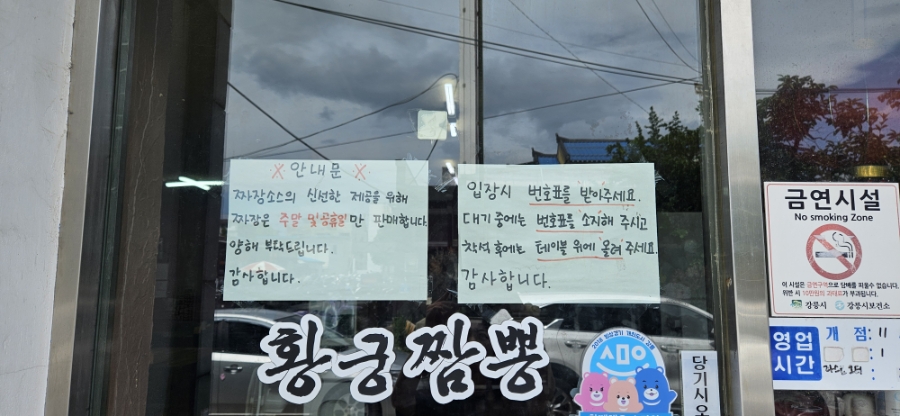 안내문
짜장소스의 신선한 제공을 위해
짜장은 주말 및 공휴일만 판매합니다.
양해 부탁드립니다.
감사합니다.
입장시 번호표를 받아주세요.
대기 중에는 번호표를 소지해 주시고
착석 후에는 테이블 위에 올려 주세요.
감사합니다.
황궁짬뽕
당기시오
금연시설
No smoking Zone
이 시설은 금연구역으로 담배를 피울수 없습니다.
위반 시 10만원의 과태료가 부과됩니다.
강릉시 강릉시보건소
영업시간
개 점: 11